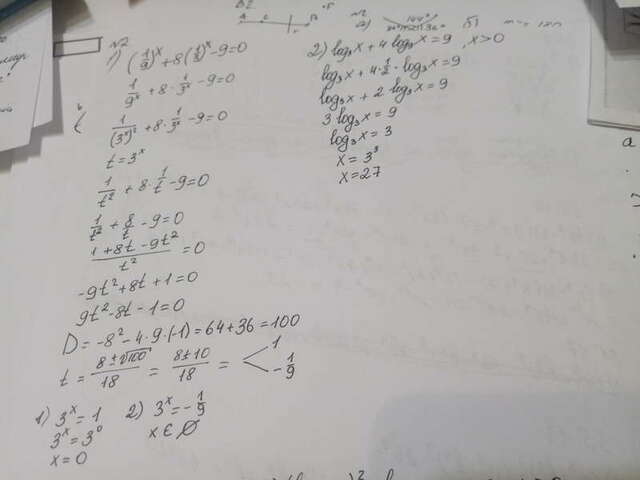 N2
1) (1/9)^x + 8(1/3)^x - 9 = 0
1/9^x + 8 · 1/3^x - 9 = 0
1/(3^x)^2 + 8 · 1/3^x - 9 = 0
t = 3^x
1/t^2 + 8 · 1/t - 9 = 0
1/t^2 + 8/t - 9 = 0
(1 + 8t - 9t^2)/t^2 = 0
-9t^2 + 8t + 1 = 0
9t^2 - 8t - 1 = 0
D = -8^2 - 4 · 9 · (-1) = 64 + 36 = 100
t = (8 ± √100)/18 = (8 ± 10)/18 = < 1
-1/9
1) 3^x = 1
3^x = 3^0
x = 0
2) 3^x = -1/9
x ∈ ∅
2) log₃x + 4 log₉x = 9, x > 0
log₃x + 4 · 1/2 · log₃x = 9
log₃x + 2 log₃x = 9
3 log₃x = 9
log₃x = 3
x = 3^3
x = 27
а